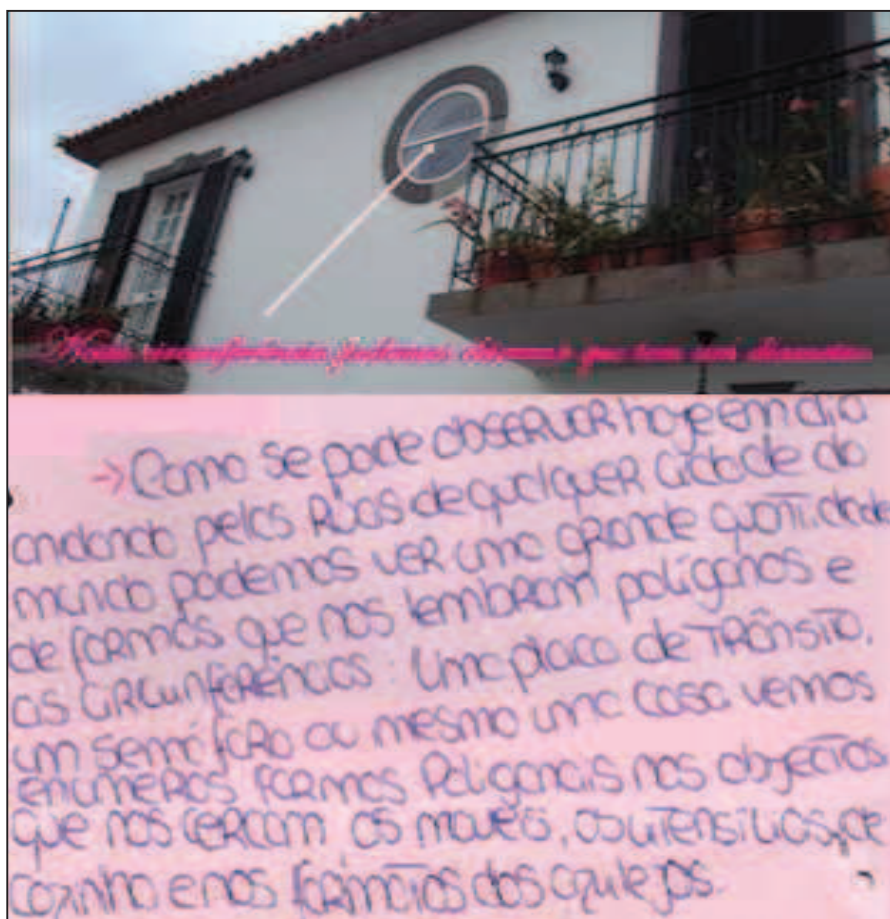 Nesta circunferência podemos observar que tem um diametro
→Como se pode observar hoje em dia
andando pelas Ruas de qualquer cidade do
mundo podemos ver uma grande quantidade
de formas que nos lembram polígonos e
as circunferências. Uma placa de trânsito,
um semáforo ou mesmo uma casa vemos
enumeros formas Poligonais nos objectos
que nos cercam os moveis, os utensílios, de
cozinha e nos formatos dos azulejos.